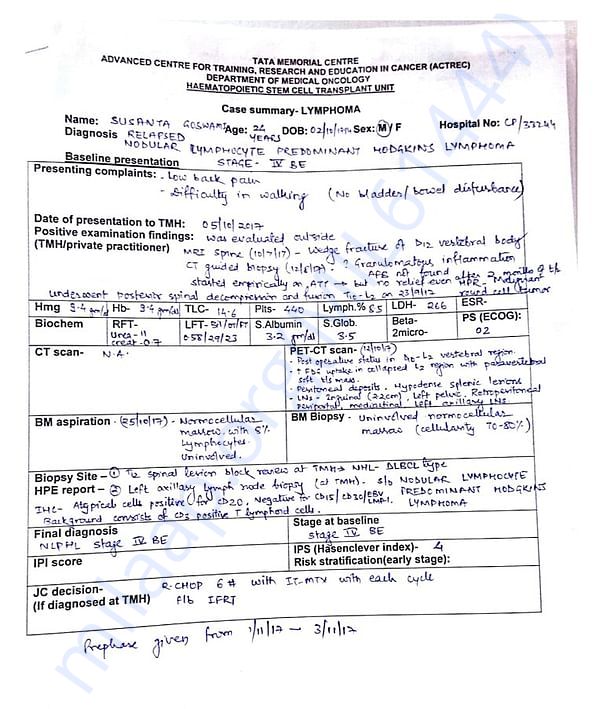 TATA MEMORIAL CENTRE
ADVANCED CENTRE FOR TRAINING, RESEARCH AND EDUCATION IN CANCER (ACTREC)
DEPARTMENT OF MEDICAL ONCOLOGY
HAEMATOPOIETIC STEM CELL TRANSPLANT UNIT
Case summary- LYMPHOMA
Name: SUSANTA GOSWAMI Age: YEARS DOB: Sex: M / F Hospital No: CP/33244
Diagnosis RELAPSED
NODULAR LYMPHOCYTE PREDOMINANT HODGKINS LYMPHOMA
Baseline presentation STAGE- IV BE
Presenting complaints: - Low back pain
- Difficulty in walking (No bladder/bowel disturbance)
Date of presentation to TMH: 05/10/2017
Positive examination findings: was evaluated outside
(TMH/private practitioner) MRI spine (10/7/17) - Wedge fracture of D12 vertebral body
CT guided biopsy - ? Granulomatous inflammation
AFB not found
started empirically on ATT → but no relief even after 2 months of
underwent posterior spinal decompression and fusion on HPR- Malignant
round cell tumor
Hmg 3.4 gm/dl Hb- 3.4 gm/dl TLC- 14.6 Plts- 440 Lymph.% 85 LDH- 266 ESR-
Biochem RFT- Urea-11 creat-0.7 LFT- 0.58/29/23 S.Albumin 3.2 gm/dl S.Glob. 3.5 Beta-2micro- PS (ECOG): 02
CT scan- N.A.
PET-CT scan- (12/10/17)
- Post operative status in vertebral region.
- ↑ FDG uptake in collapsed L2 region with paravertebral
soft tis mass.
- Peritoneal deposits. Hypodense splenic lesions
- LNs- Inguinal (2.2cm), Left pelvic, Retroperitoneal
Periportal, mediastinal, Left axillary LNs.
BM aspiration - (25/10/17) - Normocellular
marrow with 5%
Lymphocytes.
Uninvolved.
BM Biopsy - Uninvolved normocellular
marrow (cellularity 70-80%)
Biopsy Site - ① spinal lesion block review at TMH → NHL- DLBCL type
HPE report - ② Left axillary Lymph node biopsy (at TMH). s/o NODULAR LYMPHOCYTE
PREDOMINANT HODGKINS
LYMPHOMA
IHC- Atypical cells positive for CD20, Negative for CD15/CD30/EBV LMP1.
Background consists of CD3 positive T lymphoid cells.
Final diagnosis
NLPHL Stage IV BE
Stage at baseline
stage IV BE
IPI score
IPS (Hasenclever index)- 4
Risk stratification(early stage):
JC decision- R-CHOP 6# with IT-MTX with each cycle
(If diagnosed at TMH) f/b IFRT
Prephase given from 1/11/17 - 3/11/17
milaap.org (mil 614444)